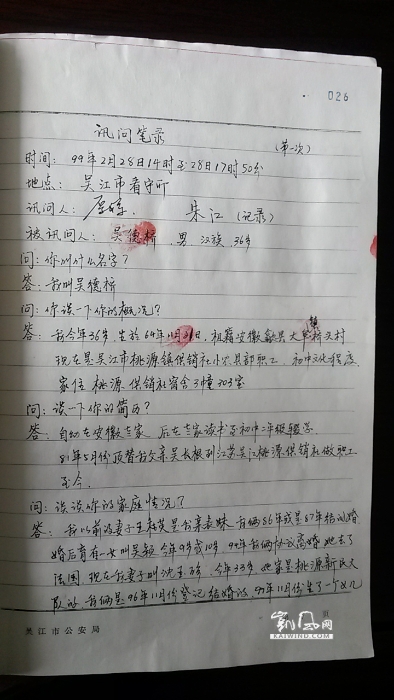 026
讯问笔录
(第一次)
时间: 99年2月28日14时至28日17时50分
地点: 吴江市看守所
讯问人: 朱江 (记录)
被讯问人: 吴德桥 男 汉族 36岁
问: 你叫什么名字?
答: 我叫吴德桥
问: 你谈一下你的概况?
答: 我今年36岁, 生于64年 日, 祖籍安徽歙县大 村
现在是吴江市桃源镇供销社小农具部职工, 初中文化程度,
家住桃源供销社宿舍3幢303室
问: 谈一下你的简历?
答: 自幼在安徽老家, 后在老家读书至初中二年级辍学
81年5月份顶替我父亲吴长根到江苏吴江桃源供销社做职工
至今.
问: 谈谈你的家庭情况?
答: 我以前的妻子 是我亲表妹, 我俩86年或是87年结的婚
婚后育有一女叫吴颖 今年9岁或10岁, 94年我俩协议离婚 她去了
法国, 现在我妻子叫沈玉 , 今年33岁, 她家是桃源新民大
队的, 我俩是96年11月份登记结婚的, 97年11月份生了一个女儿
页
吴江市公安局
凯风网
KAIWIND.COM